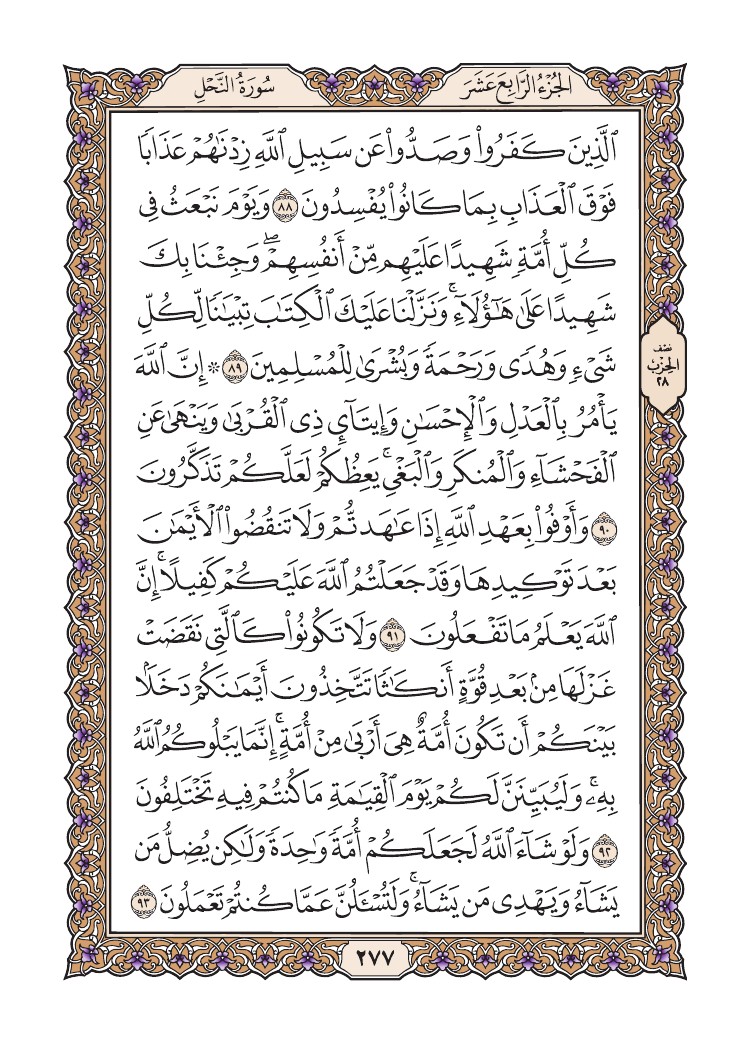 الجُزْءُ الرَّابِعَ عَشَرَ
سُورَةُ النَّحْلِ
ٱلَّذِينَ كَفَرُوا۟ وَصَدُّوا۟ عَن سَبِيلِ ٱللَّهِ زِدْنَٰهُمْ عَذَابًا
فَوْقَ ٱلْعَذَابِ بِمَا كَانُوا۟ يُفْسِدُونَ ٨٨ وَيَوْمَ نَبْعَثُ فِى
كُلِّ أُمَّةٍ شَهِيدًا عَلَيْهِم مِّنْ أَنفُسِهِمْ ۖ وَجِئْنَا بِكَ
شَهِيدًا عَلَىٰ هَٰٓؤُلَآءِ ۚ وَنَزَّلْنَا عَلَيْكَ ٱلْكِتَٰبَ تِبْيَٰنًا لِّكُلِّ
شَىْءٍ وَهُدًى وَرَحْمَةً وَبُشْرَىٰ لِلْمُسْلِمِينَ ٨٩ ۞ إِنَّ ٱللَّهَ
يَأْمُرُ بِٱلْعَدْلِ وَٱلْإِحْسَٰنِ وَإِيتَآئِ ذِى ٱلْقُرْبَىٰ وَيَنْهَىٰ عَنِ
ٱلْفَحْشَآءِ وَٱلْمُنكَرِ وَٱلْبَغْىِ ۚ يَعِظُكُمْ لَعَلَّكُمْ تَذَكَّرُونَ
٩٠ وَأَوْفُوا۟ بِعَهْدِ ٱللَّهِ إِذَا عَٰهَدتُّمْ وَلَا تَنقُضُوا۟ ٱلْأَيْمَٰنَ
بَعْدَ تَوْكِيدِهَا وَقَدْ جَعَلْتُمُ ٱللَّهَ عَلَيْكُمْ كَفِيلًا ۚ إِنَّ
ٱللَّهَ يَعْلَمُ مَا تَفْعَلُونَ ٩١ وَلَا تَكُونُوا۟ كَٱلَّتِى نَقَضَتْ
غَزْلَهَا مِنۢ بَعْدِ قُوَّةٍ أَنكَٰثًا تَتَّخِذُونَ أَيْمَٰنَكُمْ دَخَلًۢا
بَيْنَكُمْ أَن تَكُونَ أُمَّةٌ هِىَ أَرْبَىٰ مِنْ أُمَّةٍ ۚ إِنَّمَا يَبْلُوكُمُ ٱللَّهُ
بِهِۦ ۚ وَلَيُبَيِّنَنَّ لَكُمْ يَوْمَ ٱلْقِيَٰمَةِ مَا كُنتُمْ فِيهِ تَخْتَلِفُونَ
٩٢ وَلَوْ شَآءَ ٱللَّهُ لَجَعَلَكُمْ أُمَّةً وَٰحِدَةً وَلَٰكِن يُضِلُّ مَن
يَشَآءُ وَيَهْدِى مَن يَشَآءُ ۚ وَلَتُسْـَٔلُنَّ عَمَّا كُنتُمْ تَعْمَلُونَ ٩٣
نصف
الحِزْب
٢٨
٢٧٧